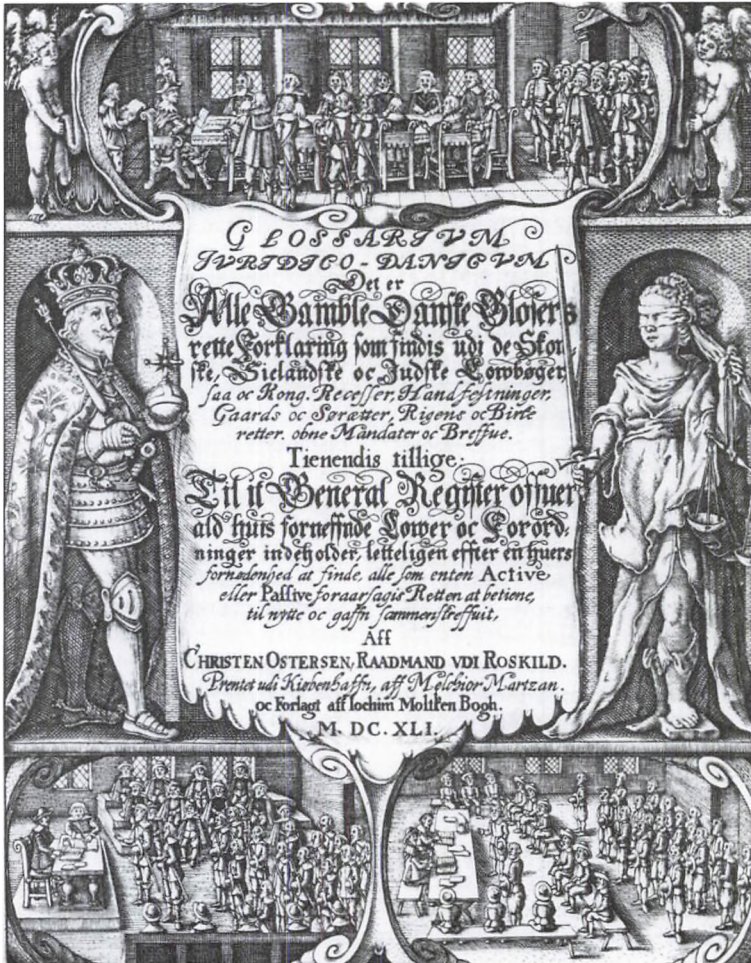 GLOSSARIVM
IVRIDICO-DANICVM
Det er
Alle Gamble Danske Glosers
rette Forklaring som findis udi de Skon
ske, Sielandske oc Judske Lowbøger,
saa oc Kong. Recesser, Handfestninger,
Gaards oc Sørætter, Rigens oc Birke
retter, obne Mandater oc Breffue.
Tienendis tillige:
Til it General Register offuer
ald huis forneffnde Lower oc Forord-
ninger indeholder, letteligen effter en huers
fornødenhed at finde, alle som enten Active
eller Passive foraarsagis Retten at betiene,
til nytte oc gaffn sammenskreffuit,
Aff
CHRISTEN OSTERSEN, RAADMAND VDI ROSKILD.
Prentet udi Kiøbenhaffn, aff Melchior Martzan.
oc Forlagt aff Iochim Moltken Bogh.
M. DC. XLI.